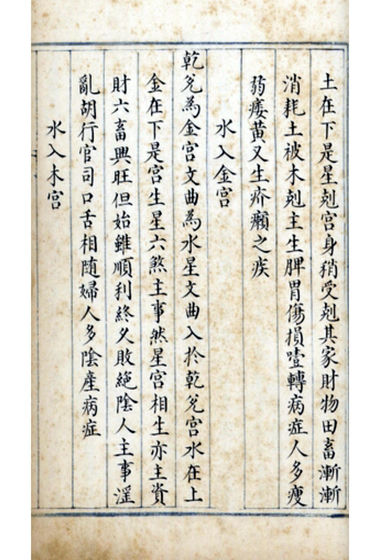 土在下是星剋宮身稍受剋其家財物田畜漸漸
消耗土被木剋主生脾胃傷損壹轉病症人多瘦
弱痿黄又生疥癩之疾
水入金宮
乾兌為金宮文曲為水星文曲入於乾兌宮水在上
金在下是宮生星六煞主事然星宮相生亦主資
財六畜興旺但始雖順利終久敗絕陰人主事淫
亂胡行官司口舌相随婦人多陰產病症
水入木宮